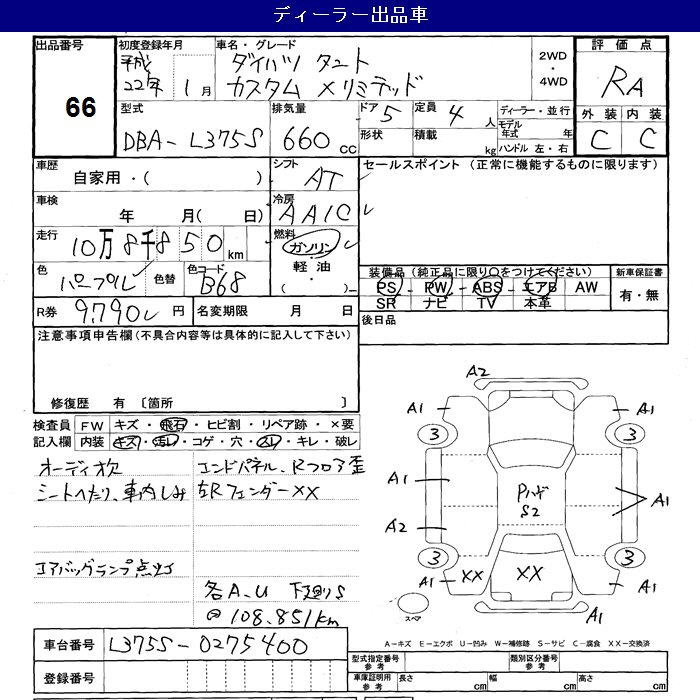 ディーラー出品車
出品番号
66
初度登録年月
平成
22年 1月
車名・グレード
ダイハツ タント
カスタム Xリミテッド
2WD
・
4WD
評価点
RA
外装 内装
C C
型式
DBA-L375S
排気量
660 cc
ドア 5
定員 4 人
形状
積載 kg
ディーラー・並行
モデル
年式 年
ハンドル 左・右
車歴
自家用・( )
シフト
AT
セールスポイント (正常に機能するものに限ります)
車検
年 月( 日)
冷房
AAIC
走行
10万8千850km
燃料
ガソリン・
軽油・
( )
色
パープル
色替
色コード
B68
装備品(純正品に限り○をつけてください)
PS PW ABS エアB AW
SR ナビ TV 本革
新車保証書
有・無
R券
9,790 円
名変期限 月 日
後日品
注意事項申告欄(不具合内容等は具体的に記入して下さい)
修復歴 有 〔箇所 〕
検査員
記入欄
FW キズ・飛石・ヒビ割・リペア跡・×要
内装 キズ・汚レ・コゲ・穴・スレ・キレ・破レ
オーディオ欠
シートヘたり、車内しみ
エアバッグランプ点灯
エンドパネル、Rフロア歪
左RフェンダーXX
各A.U 下廻りS
@108.851km
A2
A1
A1
3
3
A1
A1
A2
Pハゲ
S2
3
3
A1
XX
XX
A1
A1
スペア
A-キズ E-エクボ U-凹み W-補修跡 S-サビ C-腐食 XX-交換済
車台番号
L375S-0275400
登録番号
型式指定番号
参考
類別区分番号
参考
車庫証明用
参考
長さ cm
幅 cm
高さ cm